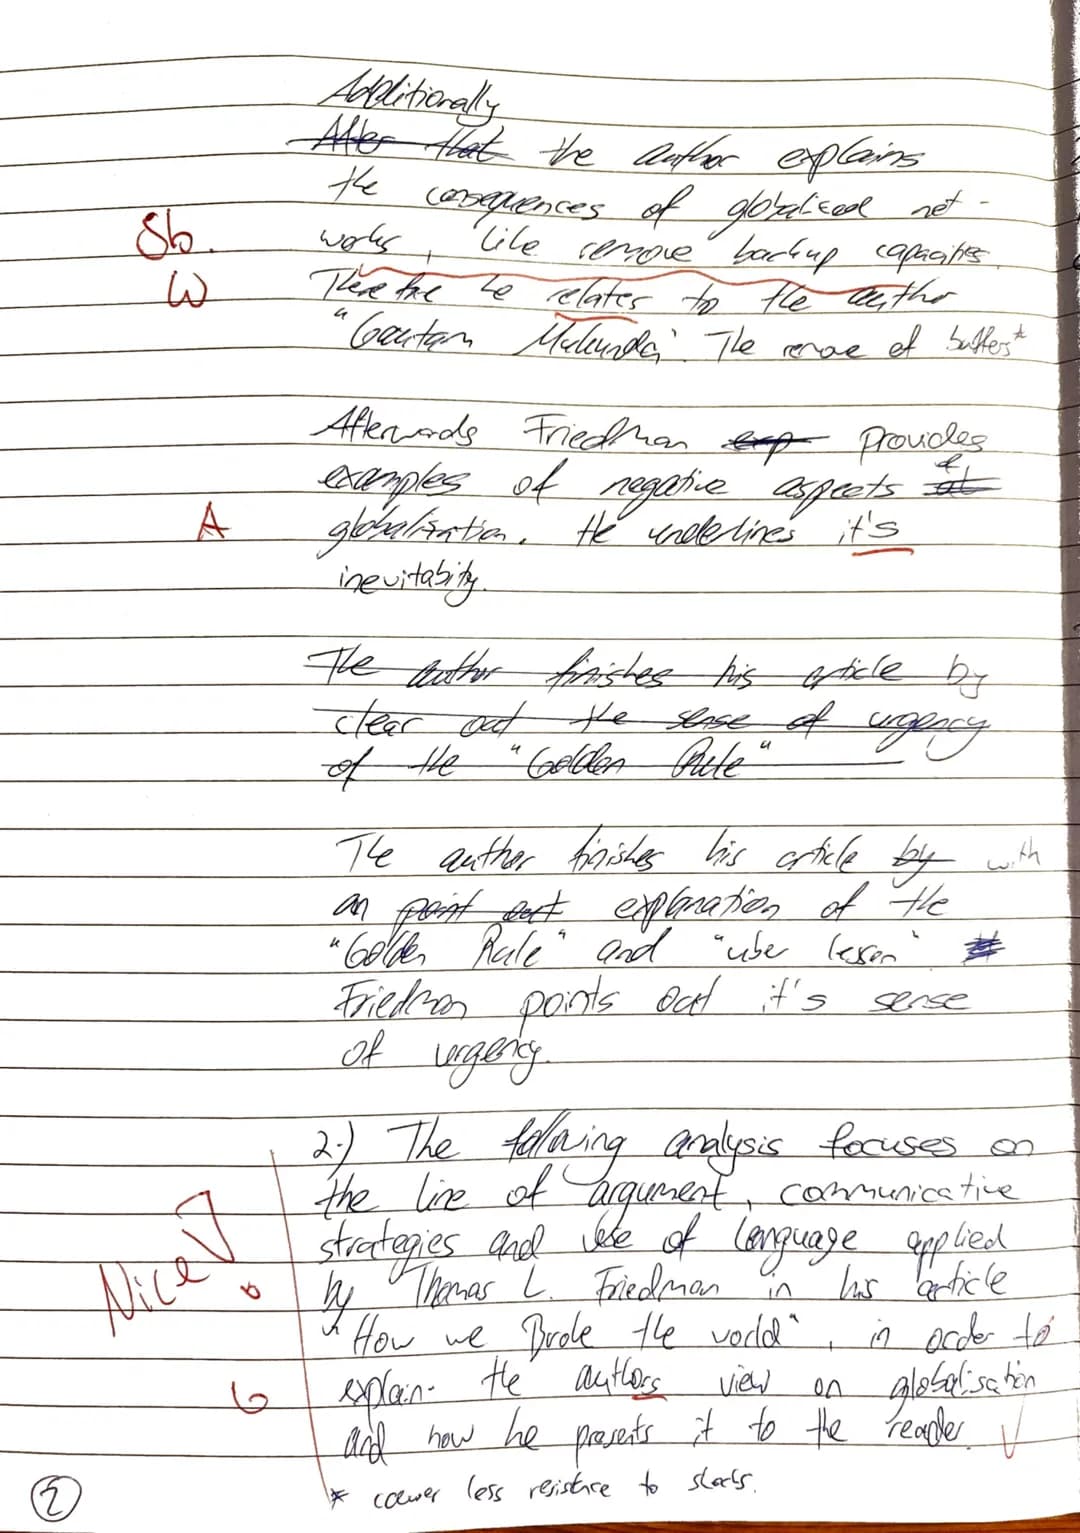 Additionally
After that the author explains
the consequences of globalised net-
Sb. works, like remove backup capacities.
W Therefore he relates to the author
"Gautam Mukunda". The remove of buffers*
Afterwards Friedman exp provides
examples of negative aspects of
A globalisation. He underlines it's
inevitabity.
The author finishes his article by
clear out the sense of urgency
of the "Golden Rule"
The author finishes his article by with
an point out explanation of the
"Golden Rule" and "uber lesson"
Friedman points out it's sense
of urgency.
2.) The following analysis focuses on
the line of argument, communicative
strategies and use of language applied
Nice! by Thomas L. Friedman in his article
"How we Broke the world", in order to
G explain the authors view on globalisation
and how he presents it to the reader. √
* less resistance to
2